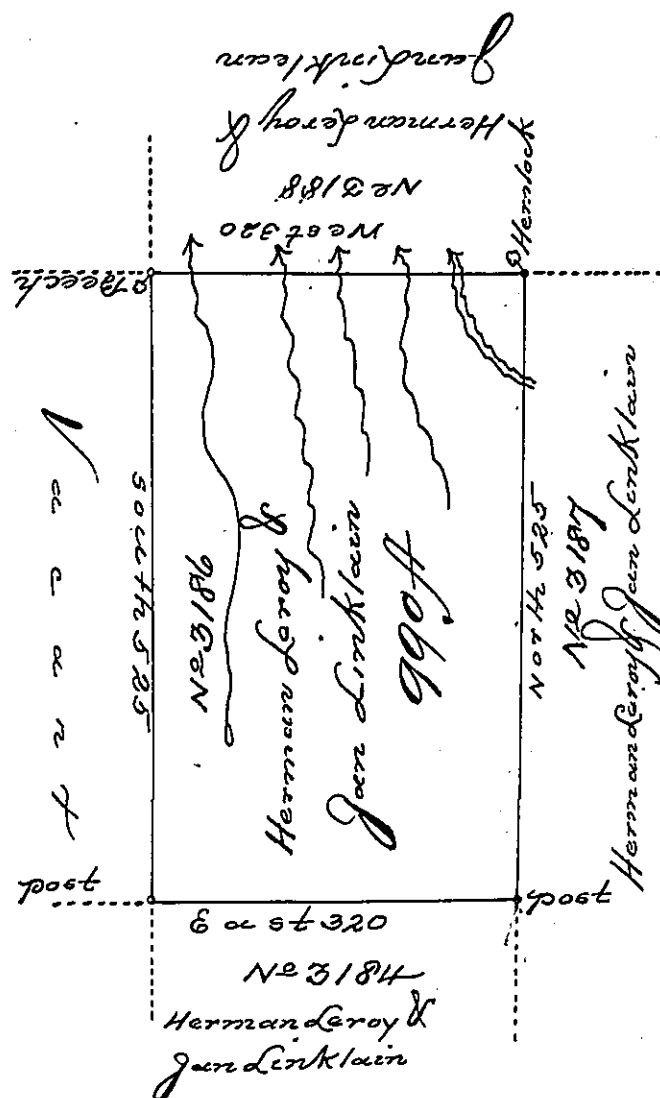 Herman Leroy &
Jan Linklean
No 3188
West 320
Beech
B Hemlock
Vacant
South 525
No 3186
Herman Leroy &
Jan Linklain
990 A
North 525
No 3187
Herman Leroy & Jan Linklain
Post
Post
East 320
No 3184
Herman Leroy &
Jan Linklain